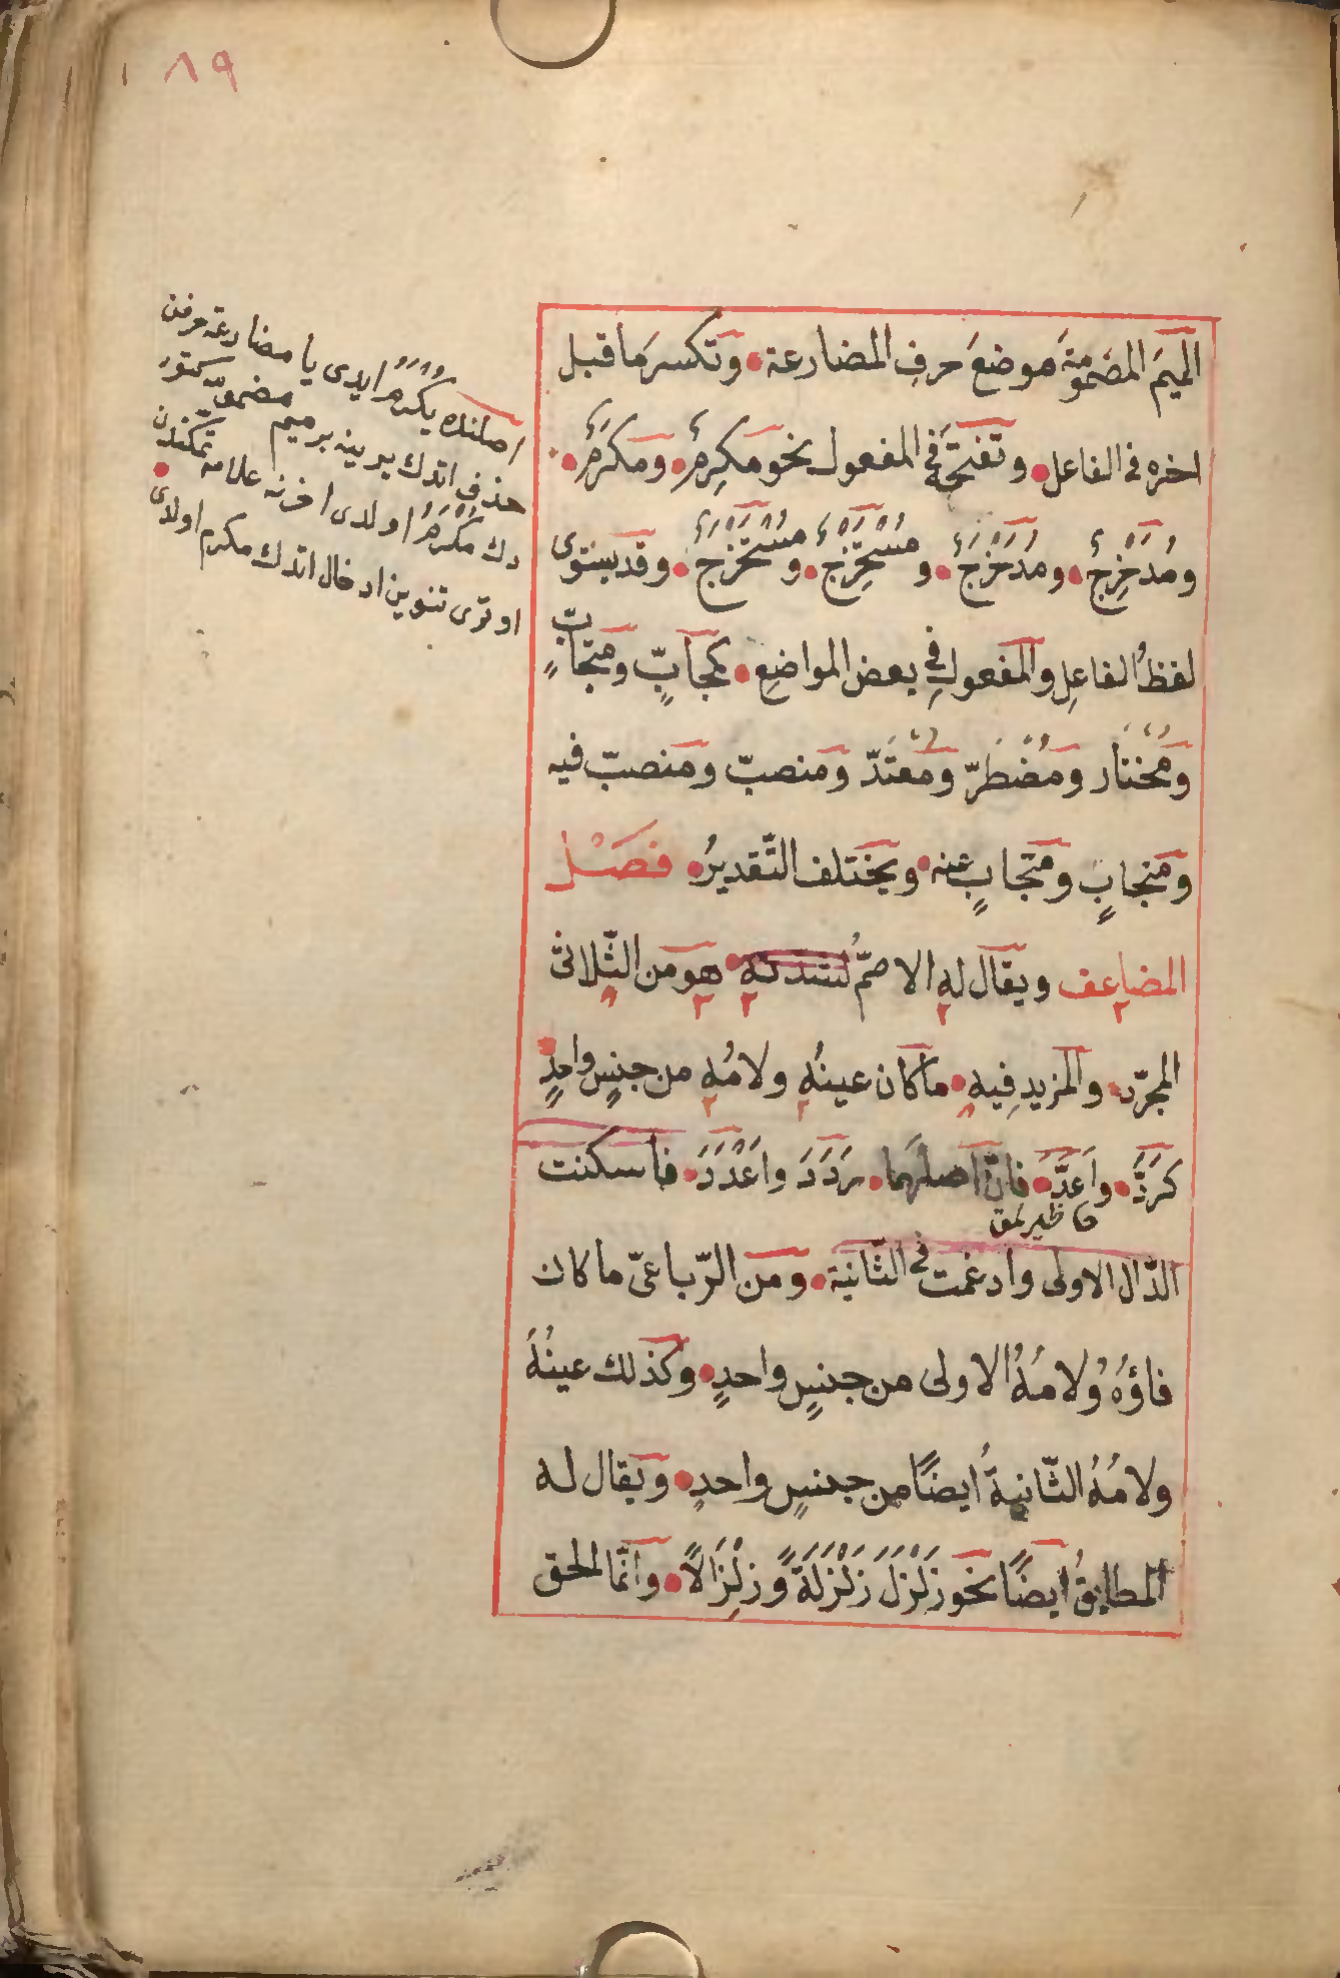 ٨٩
الميمَ المضمومةَ موضعَ حرفِ المضارعة • وتكسرَ ما قبل
اخره فى الفاعل • وتفتحَهُ فى المفعول نحو مكرِمٌ • ومكرَمٌ •
ومُدَحْرِجٌ • ومُدَحْرَجٌ • ومُسْتَخْرِجٌ • ومُسْتَخْرَجٌ • وقد يستوى
لفظُ الفاعِلِ والمفعولِ فى بعض المواضعِ • كمحابٍّ ومتحابٍّ
ومُخْتار ومُضْطَرّ ومُعْتَدّ ومنصبّ ومنصبّ فيه
ومنجابٍ ومنجابٍ عنه • ويختلف التّقديرُ • فَصْل
المضاعف ويقال له الاصمُّ لشدّته • هو من الثّلاثىّ
المجرّد • والمزيدِ فِيهِ • ما كان عينُه ولامُه من جنسٍ واحدٍ
كرَدَّ • واَعَدَّ • فانّ اصلَهما • رَدَدَ واَعْدَدَ • فاسكنت
الدّال الاولى وادغمت فى الثّانية • ومن الرّباعىّ ما كان
فاؤهُ ولامُهُ الاولى من جنسٍ واحدٍ • وكذلك عينُهُ
ولامُهُ الثّانيةُ ايضًا من جنسٍ واحدٍ • ويقال له
المطابقُ ايضًا نحو زَلْزَلَ زَلْزَلَةً وَزِلْزَالًا • وانّما الحق
اصلنده يُكْرِمُ ايدى يا مضارعة حرفن
حذف اتدك يرينه بر ميم مضموم كتور
دك مُكْرِمُ اولدى اخرنه علامه تمكندن
اوترى تنوين ادخال اتدك مكرم اولدى